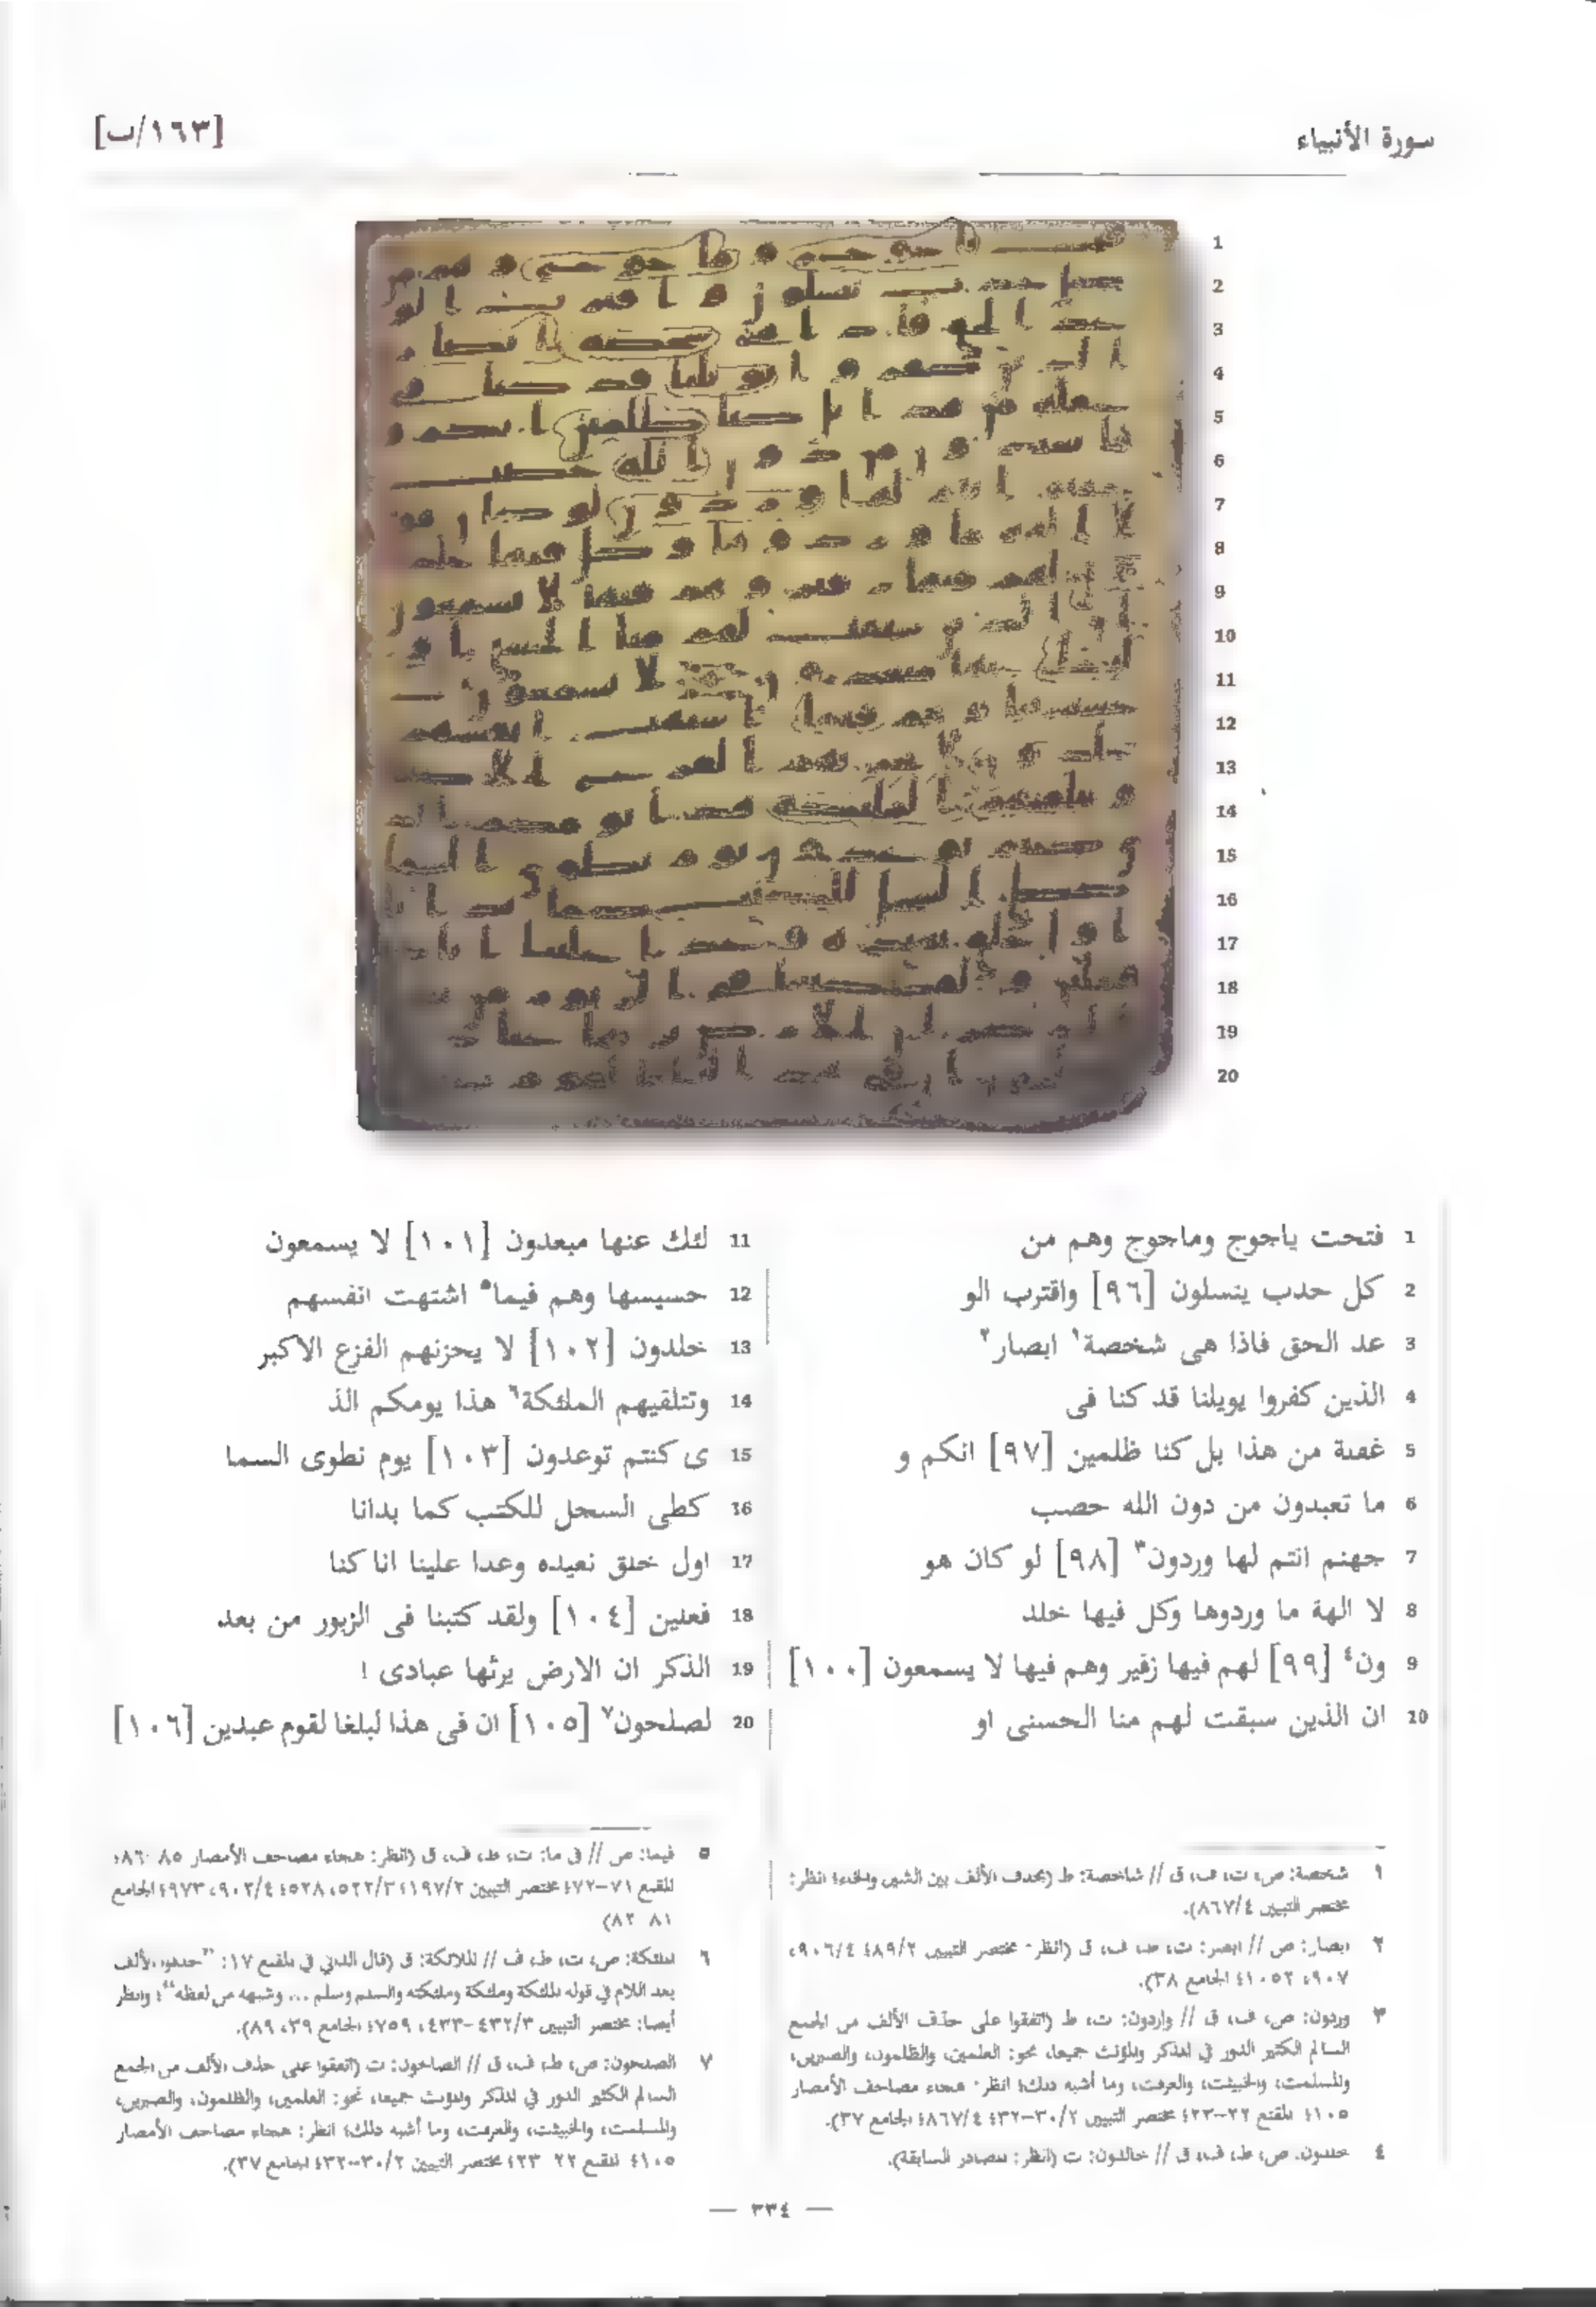 سورة الأنبياء
[١٦٣/ب]
1 فتحت ياجوج وماجوج وهم من
2 كل حدب ينسلون [٩٦] واقترب الو
3 عد الحق فاذا هى شخصة١ ابصار٢
4 الذين كفروا يويلنا قد كنا فى
5 غفلة من هذا بل كنا ظلمين [٩٧] انكم و
6 ما تعبدون من دون الله حصب
7 جهنم انتم لها وردون٣ [٩٨] لو كان هو
8 لا الهة ما وردوها وكل فيها خلد
9 ون٤ [٩٩] لهم فيها زفير وهم فيها لا يسمعون [١٠٠]
10 ان الذين سبقت لهم منا الحسنى او
11 لئك عنها مبعدون [١٠١] لا يسمعون
12 حسيسها وهم فيما٥ اشتهت انفسهم
13 خلدون [١٠٢] لا يحزنهم الفزع الاكبر
14 وتتلقيهم الملئكة٦ هذا يومكم الذ
15 ى كنتم توعدون [١٠٣] يوم نطوى السما
16 كطى السجل للكتب كما بدانا
17 اول خلق نعيده وعدا علينا انا كنا
18 فعلين [١٠٤] ولقد كتبنا فى الزبور من بعد
19 الذكر ان الارض يرثها عبادى ا
20 لصلحون٧ [١٠٥] ان فى هذا لبلغا لقوم عبدين [١٠٦]
١ شخصة: ص، ت، ف، ق // شاخصة: ط (بحذف الألف بين الشين والخاء؛ انظر:
مختصر التبيين ٨٦٧/٤).
٢ ابصار: ص // ابصر: ت، ط، ف، ق (انظر: مختصر التبيين ٤٨٩/٢، ٩٠٦/٤،
٩٠٧، ١٠٥٢؛ الجامع ٣٨).
٣ وردون: ص، ف، ق // واردون: ت، ط (اتفقوا على حذف الألف من الجمع
السالم الكثير الدور في المذكر والمؤنث جميعا، نحو: العلمين، والظلمون، والصبرين،
والمسلمت، والخبيثت، والعرفت، وما أشبه ذلك؛ انظر: هجاء مصاحف الأمصار
١٠٥؛ المقنع ٢٢-٢٣؛ مختصر التبيين ٣٠/٢-٣٢؛ ٨٦٧/٤؛ الجامع ٣٧).
٤ خلدون: ص، ط، ف، ق // خالدون: ت (انظر: المصادر السابقة).
٥ فيما: ص // فى ما: ت، ط، ف، ق (انظر: هجاء مصاحف الأمصار ٨٥-٨٦؛
المقنع ٧١-٧٢؛ مختصر التبيين ١٩٧/٢؛ ٥٢٢/٣، ٥٢٨؛ ٩٠٢/٤، ٩٧٣؛ الجامع
٨١-٨٢)
٦ الملئكة: ص، ت، ط، ف // الملائكة: ق (قال الداني في المقنع ١٧: "حذفوا الألف
بعد اللام في قوله الملئكة وملئكة وملئكته والسلم وسلم ... وشبهه من لفظه"؛ وانظر
أيضا: مختصر التبيين ٤٣٢/٣-٤٣٣، ٧٥٩؛ الجامع ٣٩، ٨٩).
٧ الصلحون: ص، ط، ف، ق // الصالحون: ت (اتفقوا على حذف الألف من الجمع
السالم الكثير الدور في المذكر والمؤنث جميعا، نحو: العلمين، والظلمون، والصبرين،
والمسلمت، والخبيثت، والعرفت، وما أشبه ذلك؛ انظر: هجاء مصاحف الأمصار
١٠٥؛ المقنع ٢٢-٢٣؛ مختصر التبيين ٣٠/٢-٣٢؛ الجامع ٣٧).
— ٣٣٤ —